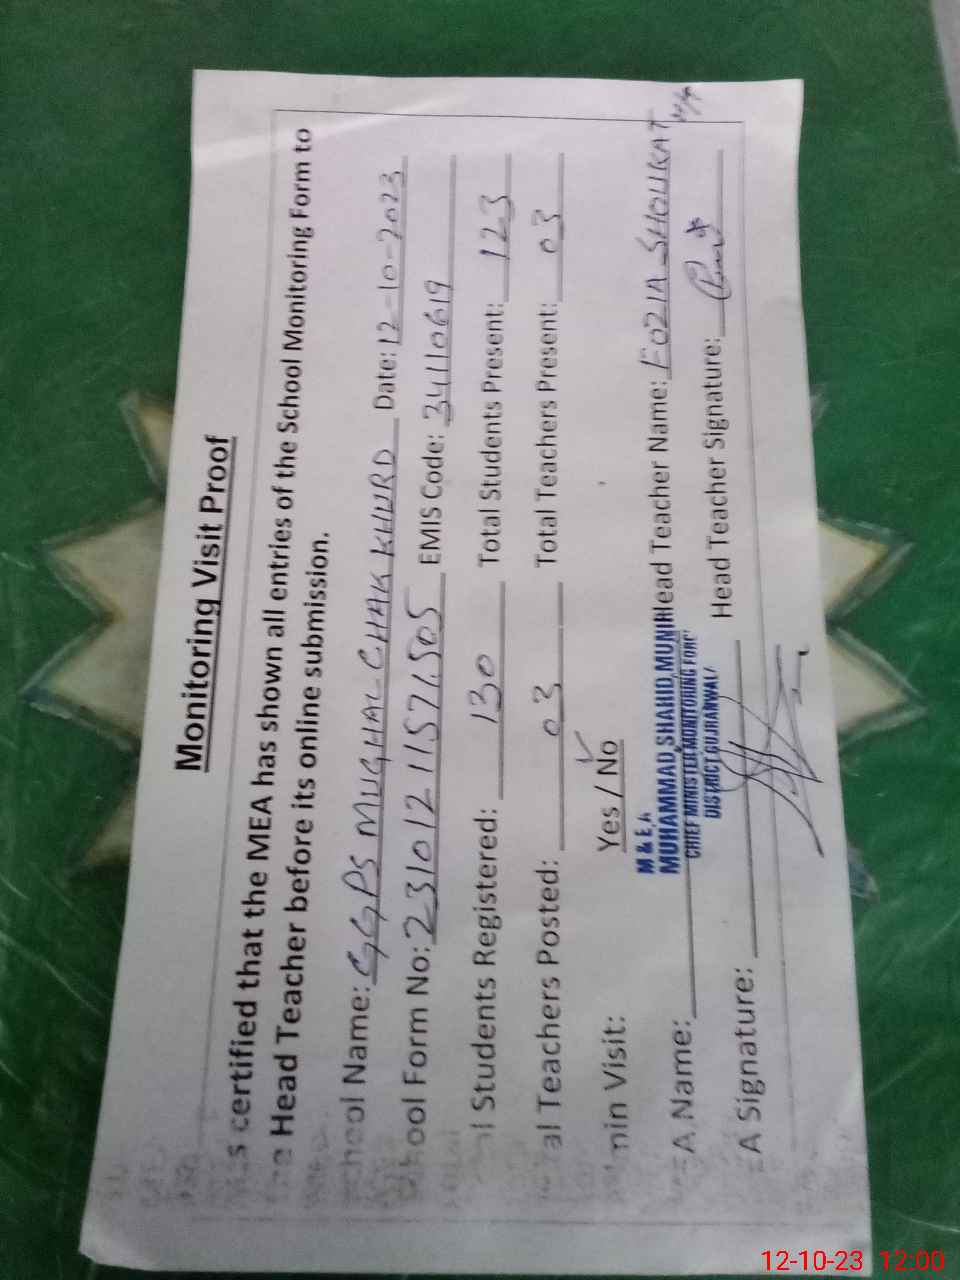 Monitoring Visit Proof
s certified that the MEA has shown all entries of the School Monitoring Form to
Head Teacher before its online submission.
chool Name: GGPS MUGHAL CHAK KHURD Date: 12-10-2023
hool Form No: 23101211571505 EMIS Code: 34110619
al Students Registered: 130 Total Students Present: 123
al Teachers Posted: 03 Total Teachers Present: 03
min Visit: Yes / No ✓
M & E,A
A Name: MUHAMMAD SHAHID MUNIR Head Teacher Name: FOZIA SHOUKAT
CHIEF MINISTER MONITORING FORC
DISTRICT GUJRANWALA
A Signature: Head Teacher Signature:
12-10-23 12:00